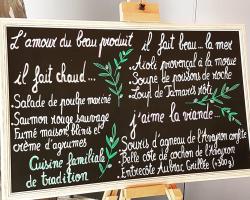 L'amour du beau produit
il fait chaud...
• Salade de poulpe mariné
• Saumon rouge sauvage
Fumé maison, blinis et
crème d'agrumes
Cuisine familiale
de tradition
il fait beau... la mer
• Aïoli provençal à la morue
• Soupe de poissons de roche
• Loup de Tamaris rôti
j'aime la viande...
• Souris d'agneau de l'Aveyron confite
• Belle côte de cochon de l'Aveyron
• Entrecôte Aubrac Grillée (≈300g)